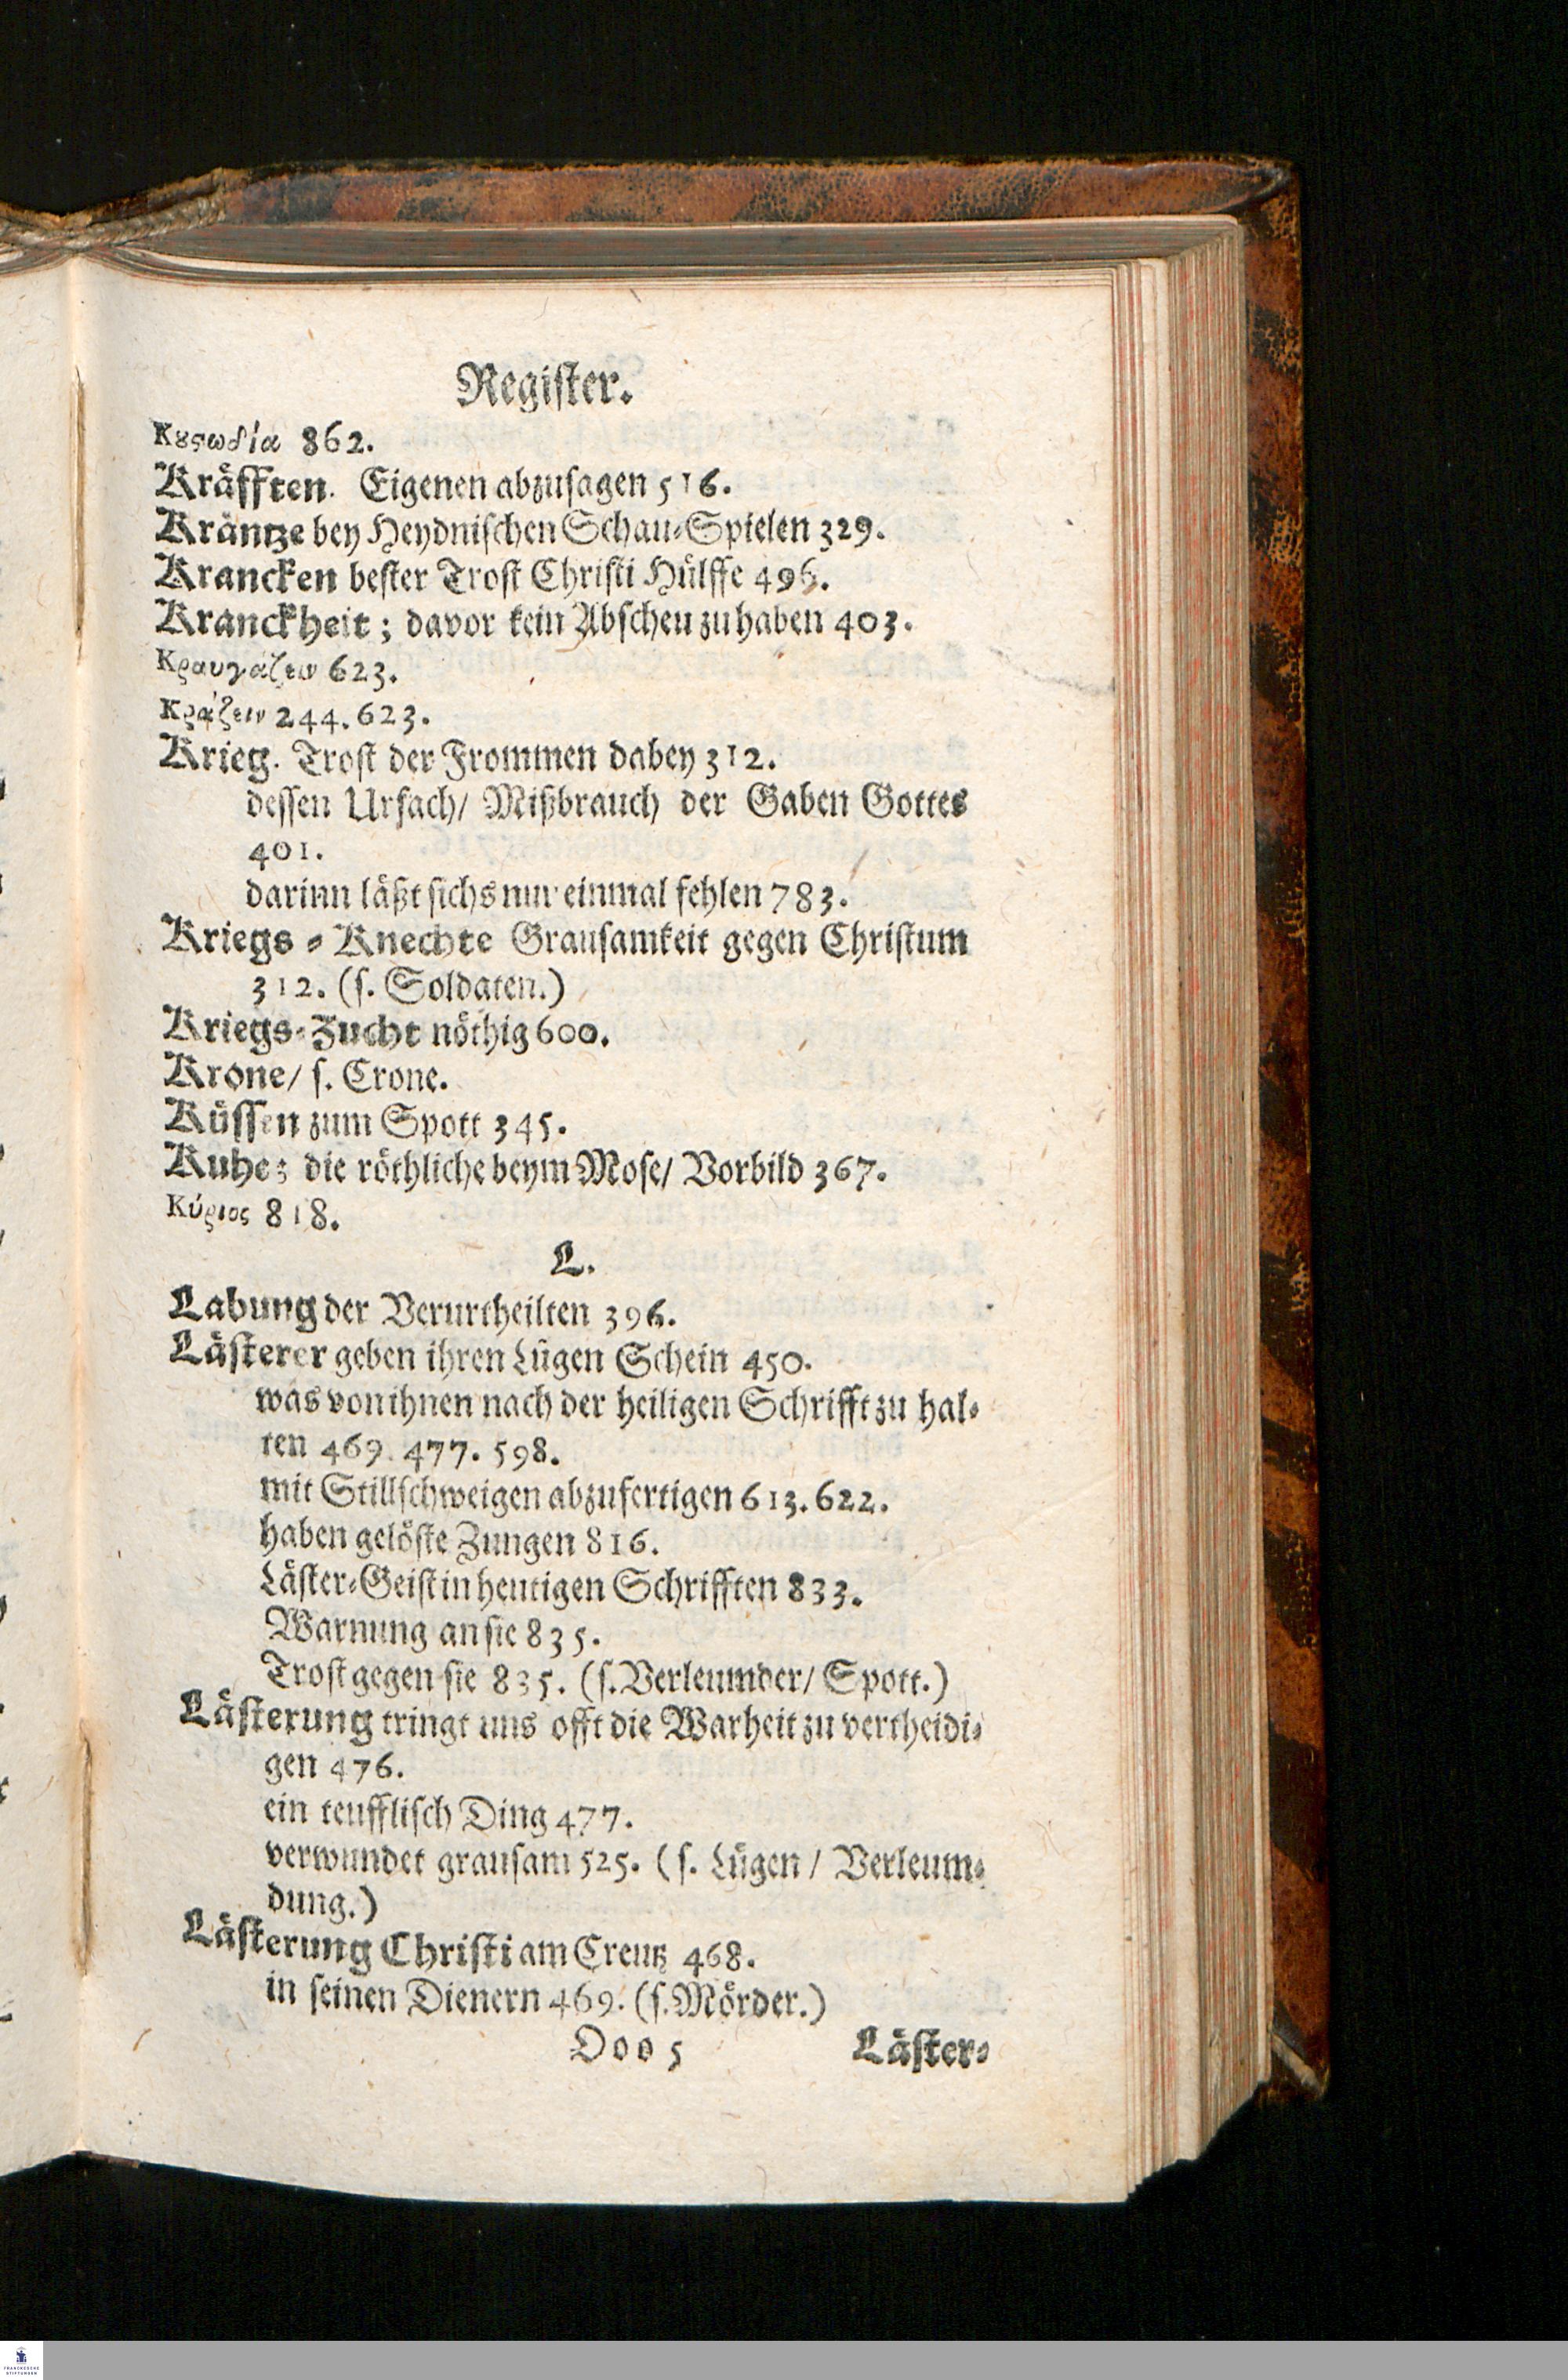 Register.
Κȣϛωδία 862.
Kräfften. Eigenen abzusagen 516.
Kräntze bey Heydnischen Schau-Spielen 329.
Krancken bester Trost Christi Hülffe 496.
Kranckheit; davor kein Abscheu zu haben 403.
Κραυγάζειν 623.
Κράζειν 244. 623.
Krieg. Trost der Frommen dabey 312.
dessen Ursach/ Mißbrauch der Gaben Gottes
401.
darinn läßt sichs nur einmal fehlen 783.
Kriegs-Knechte Grausamkeit gegen Christum
312. (s. Soldaten.)
Kriegs-Zucht nöthig 600.
Krone/ s. Crone.
Küssen zum Spott 345.
Kuhe; die röthliche beym Mose/ Vorbild 367.
Κύριος 818.
L.
Labung der Verurtheilten 396.
Lästerer geben ihren Lügen Schein 450.
was von ihnen nach der heiligen Schrifft zu hal-
ten 469. 477. 598.
mit Stillschweigen abzufertigen 613. 622.
haben gelöste Zungen 816.
Läster-Geist in heutigen Schrifften 833.
Warnung an sie 835.
Trost gegen sie 835. (s. Verleumder/ Spott.)
Lästerung tringt uns offt die Warheit zu vertheidi-
gen 476.
ein teufflisch Ding 477.
verwundet grausam 525. (s. Lügen/ Verleum-
dung.)
Lästerung Christi am Creutz 468.
in seinen Dienern 469. (s. Mörder.)
Ooo 5 Läster-
FRANCKESCHE
STIFTUNGEN